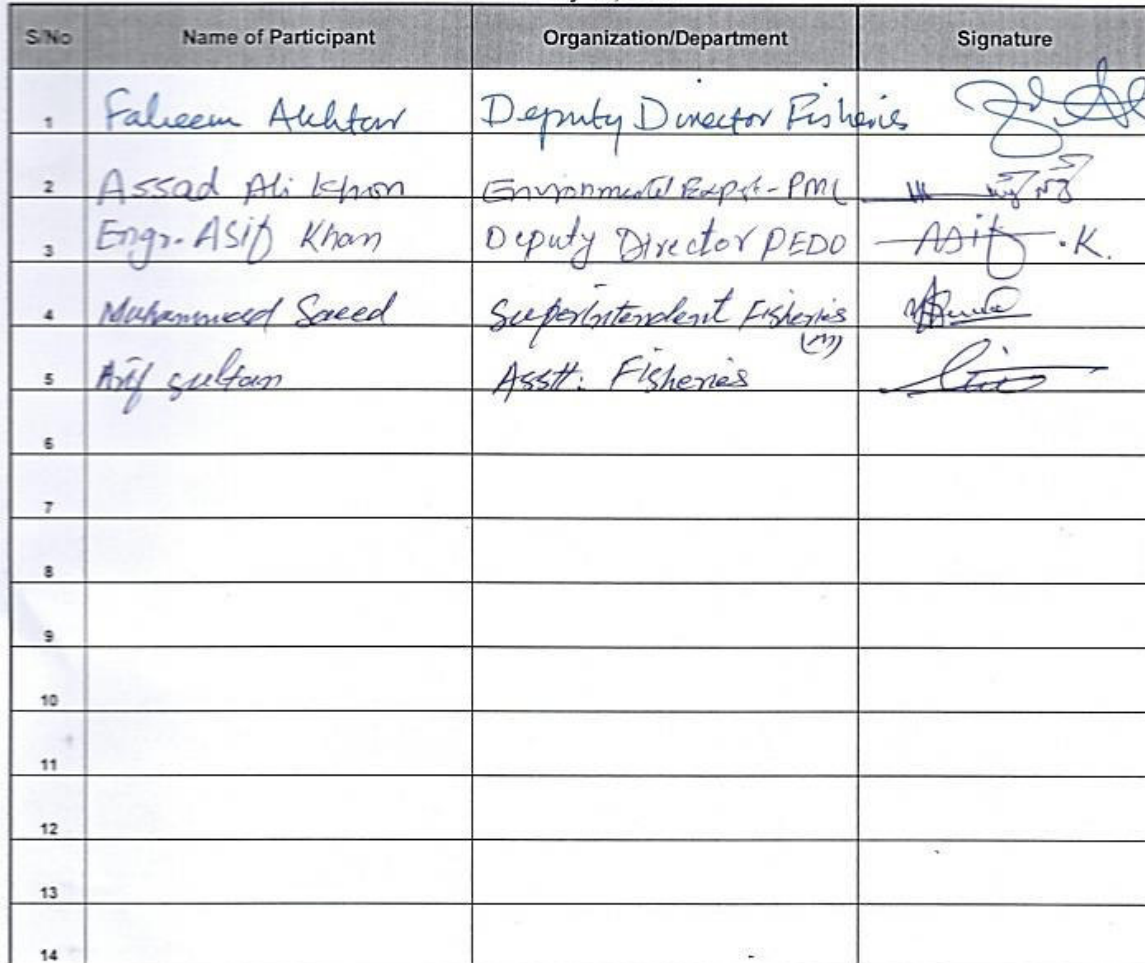 S/No Name of Participant Organization/Department Signature
1 Faheem Akhtar Deputy Director Fisheries
2 Assad Ali Khan Environmental Expt-PMC
3 Engr. Asif Khan Deputy Director PEDO Asif .K.
4 Muhammad Saeed Superintendent Fisheries
5 Arif sultan Asstt: Fisheries
6
7
8
9
10
11
12
13
14